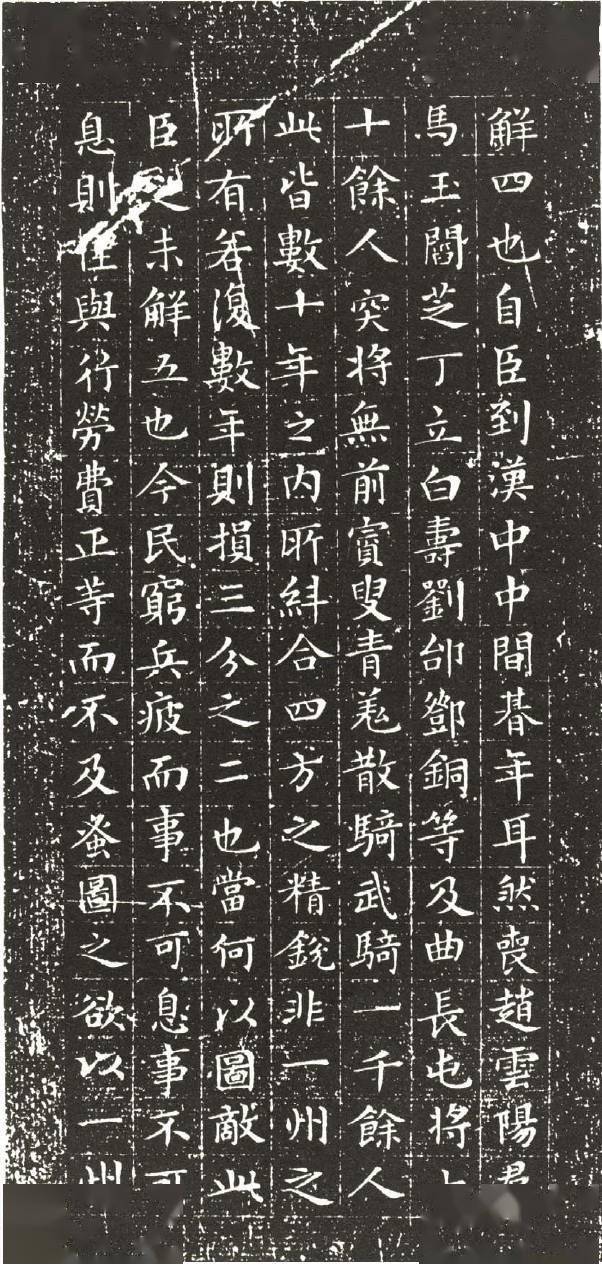 解四也自臣到漢中中間朞年耳然喪趙雲陽羣
馬玉閻芝丁立白壽劉郃鄧銅等及曲長屯將七
十餘人突將無前賨叟青羌散騎武騎一千餘人
此皆數十年之内所糾合四方之精銳非一州之
所有若復數年則損三分之二也當何以圖敵此
臣之未解五也今民窮兵疲而事不可息事不可
息則住與行勞費正等而不及蚤圖之欲以一州